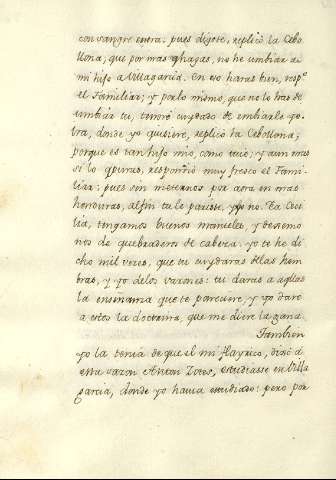 con sangre entra: pues dígote, replicó la Cebo
llona, que por mas q̃ hagas, no he de embiar a
mi hijo a Villagarcia. En eso haras bien, resp.º
el Familiar; y por lo mismo, que no le has de
embiar tu, tendré cuydado de embiarle yo.
tra, donde yo quisiere, replicó la Cebollona;
porque es tan hijo mio, como tuio; y aun mas
si lo apuras, respondió muy fresco el Fami-
liar: pues sin meternos por aora en mas
honduras, al fin tu le pariste, y yo no. Ea Ceci
lia, tengamos buenos manteles, y dexemo
nos de quebraderos de cabeza. Yo te he di
cho mil veces, que tu cuydaras de las hem
bras, y yo de los varones: tu daras a aquellas
la enseñanza que te pareciere, y yo daré
a estos la doctrina, que me diere la gana.
Tambien
yo la tenia de que el mi flayrico, dixo a
esta sazon Anton Zotes, estudiasse en Villa
garcia, donde yo havia estudiado: pero por